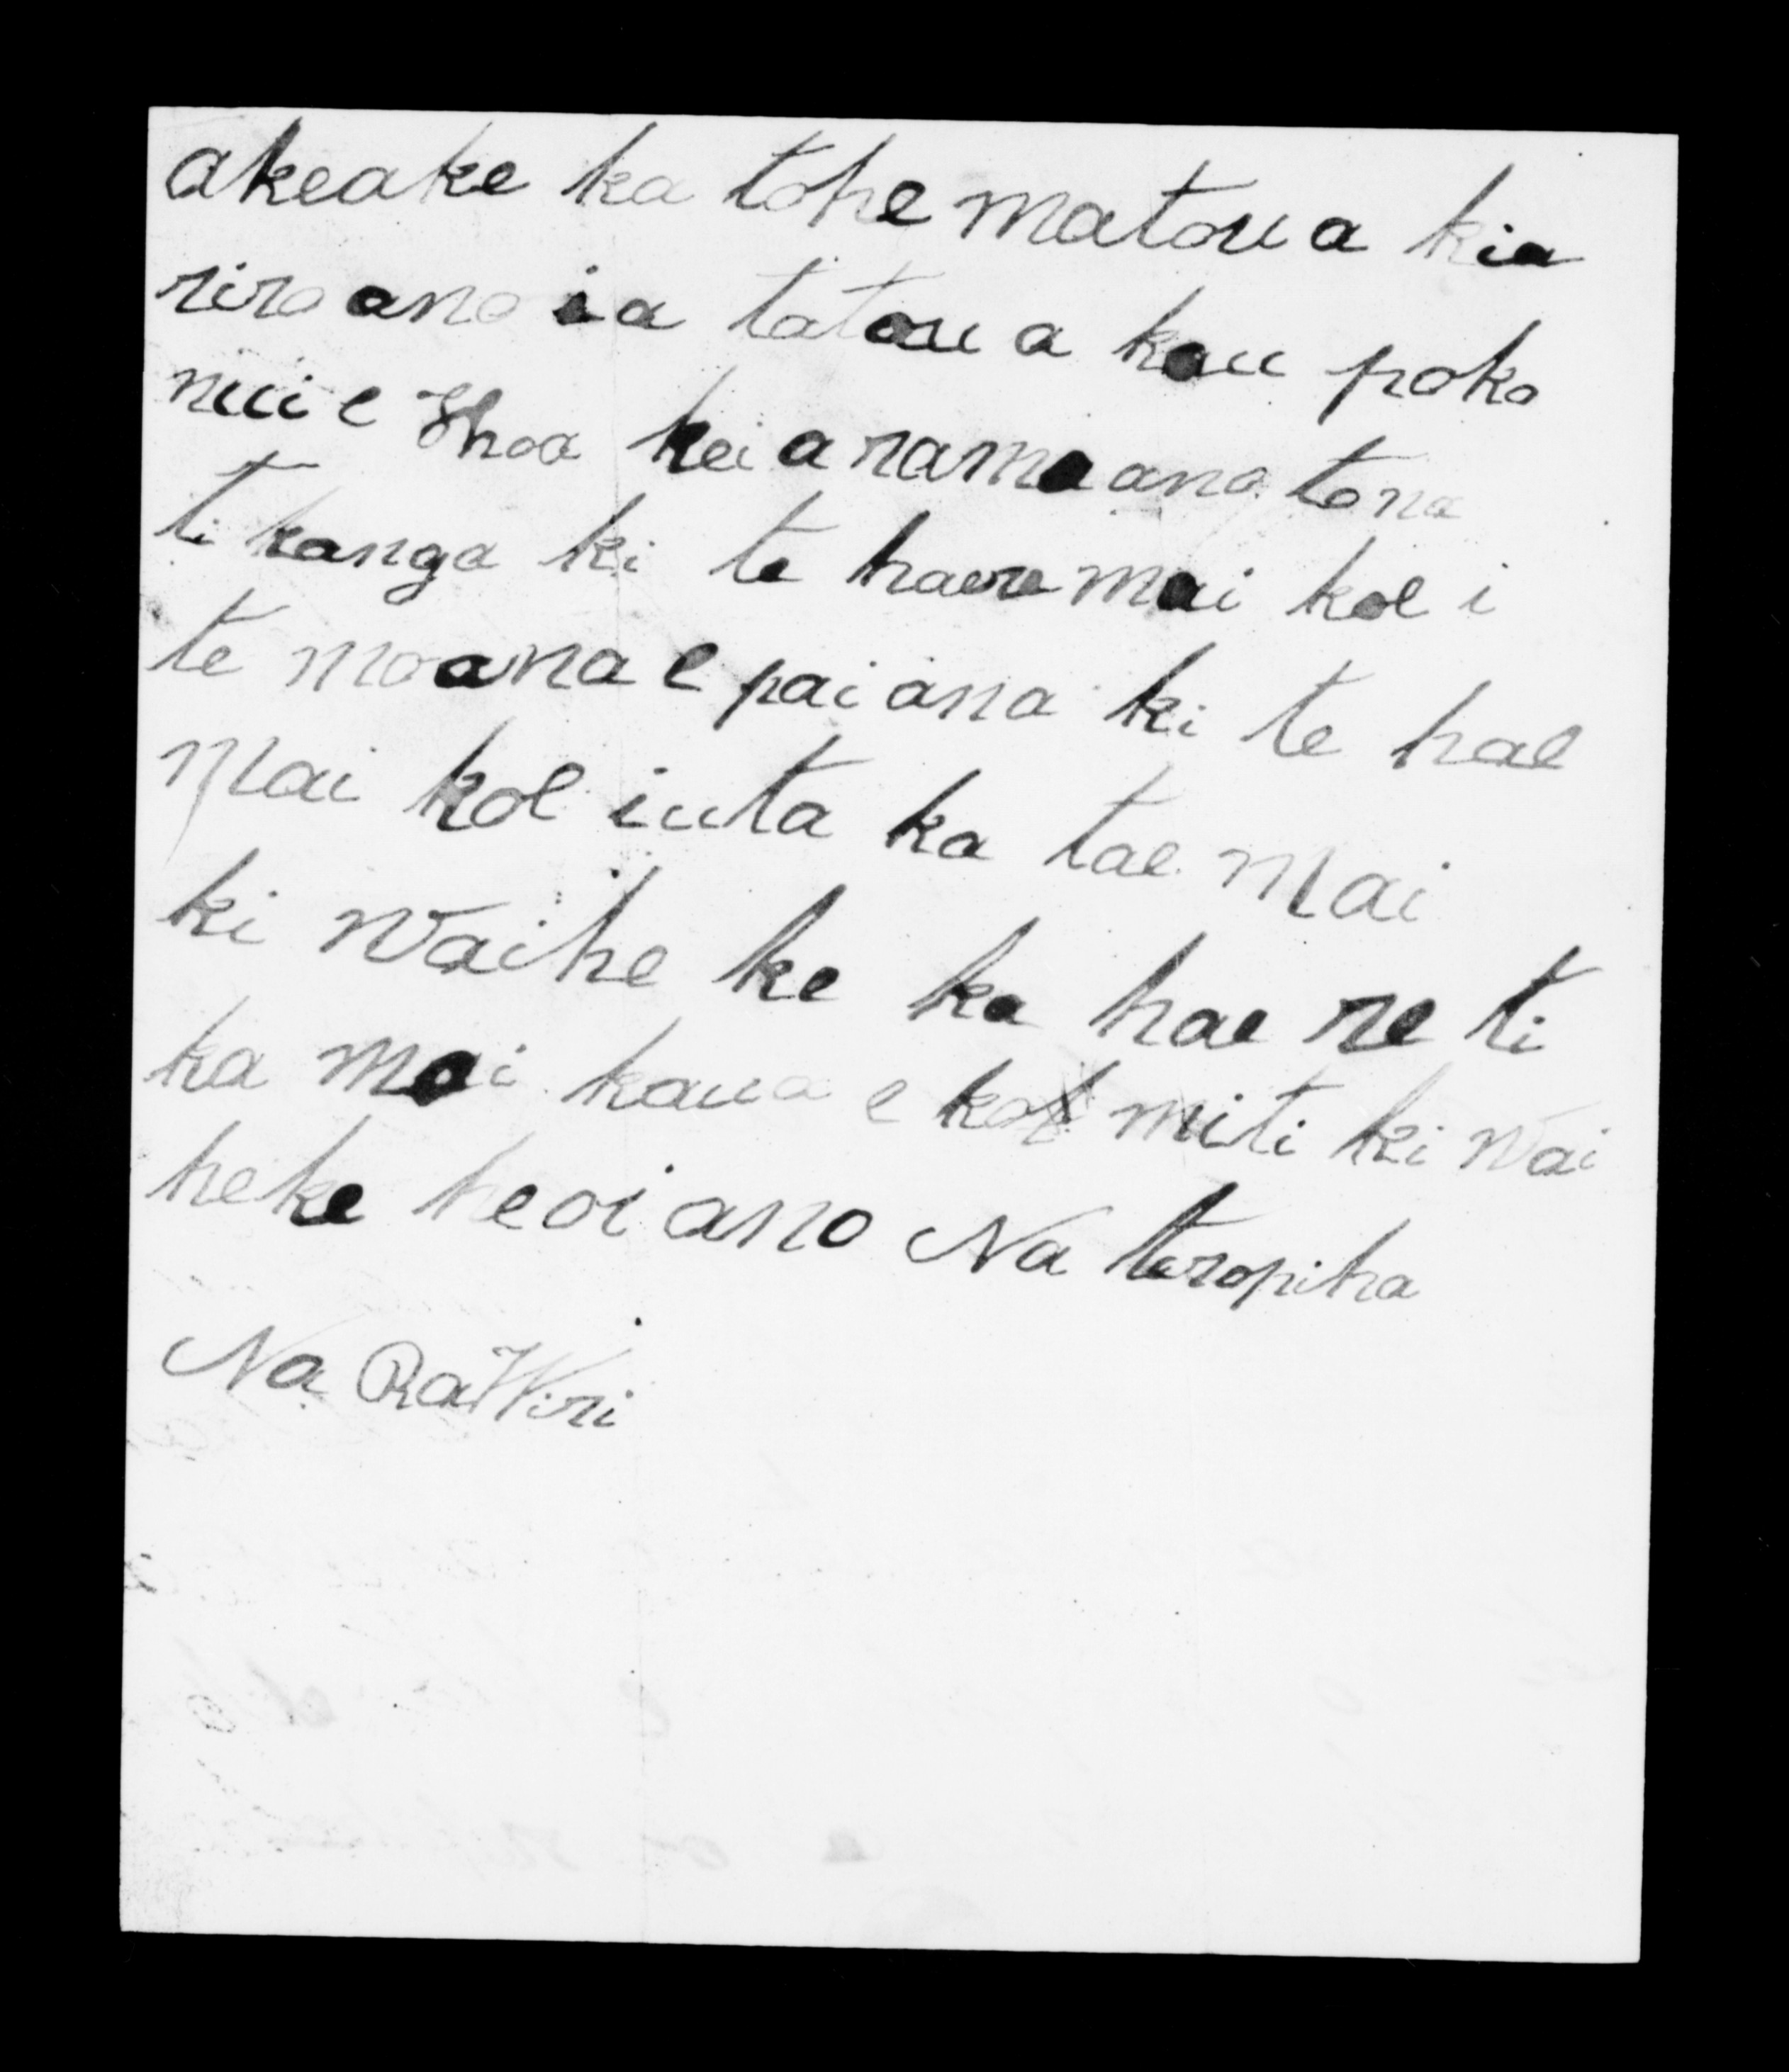 akeake ka tohe matou a kia
riro ano ia tatou a kau poka
nui e Hoa kei a rama ano tona
ti kanga ki te haere mai koe i
te moana e pai ana ki te hae
mai koe iuta ka tae mai
ki Waihe ke ka hae re ti
ka mai kaua e ko miti ki Wai
heke heoi ano Na teropiha
Na RaWiri